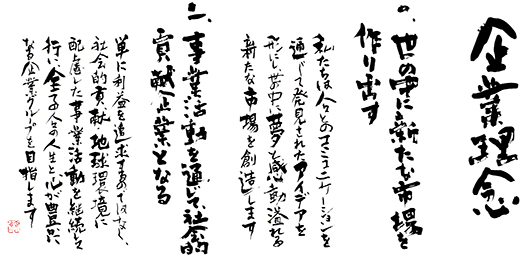 企業理念
一、世の中に新たな市場を
作り出す
私たちは人々とのコミュニケーションを
通じて発見されたアイデアを
形にし世の中に夢と感動溢れる
新たな市場を創造します
一、事業活動を通じて、社会的
貢献企業となる
単に利益を追求するのではなく、
社会的貢献・地球環境に
配慮した事業活動を継続して
行い、全ての人の人生と心が豊かに
なる企業グループを目指します